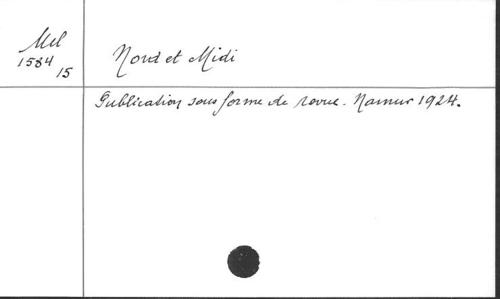 Mel
1584
15
Nord et Midi
Publication sous forme de revue. Namur 1924.